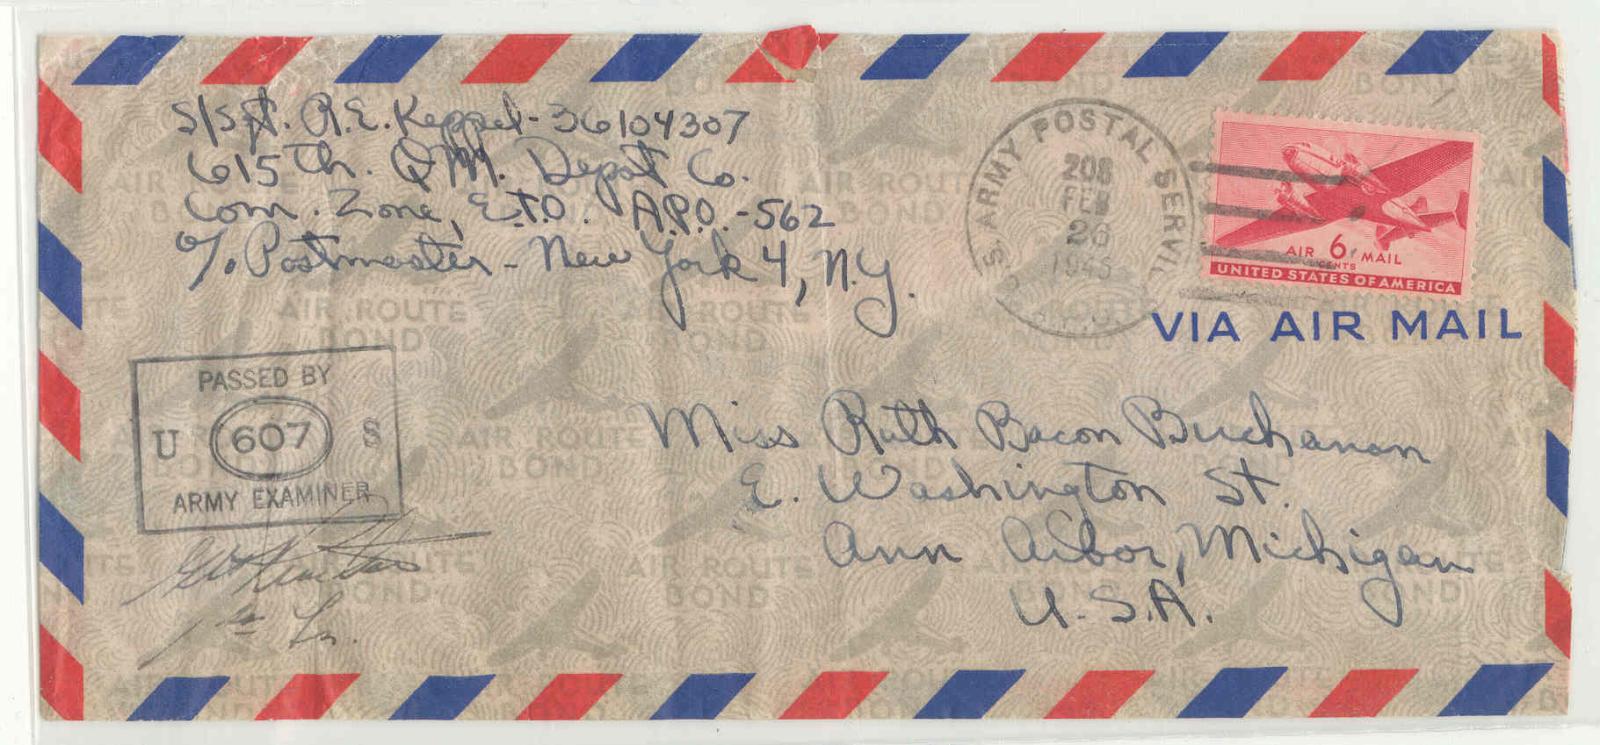 S/Sgt. R.E. Keppel - 36104307
615th. QM. Depot Co.
Com. Zone, E.T.O. A.P.O. - 562
c/o Postmaster - New York 4, N.Y.
U.S. ARMY POSTAL SERVICE
208
FEB
26
1945
AIR 6 MAIL
CENTS
UNITED STATES OF AMERICA
VIA AIR MAIL
PASSED BY
U 607 S
ARMY EXAMINER
1st Lt.
Miss Ruth Bacon Buchanan
E. Washington St.
Ann Arbor, Michigan
U.S.A.
AIR ROUTE
BOND